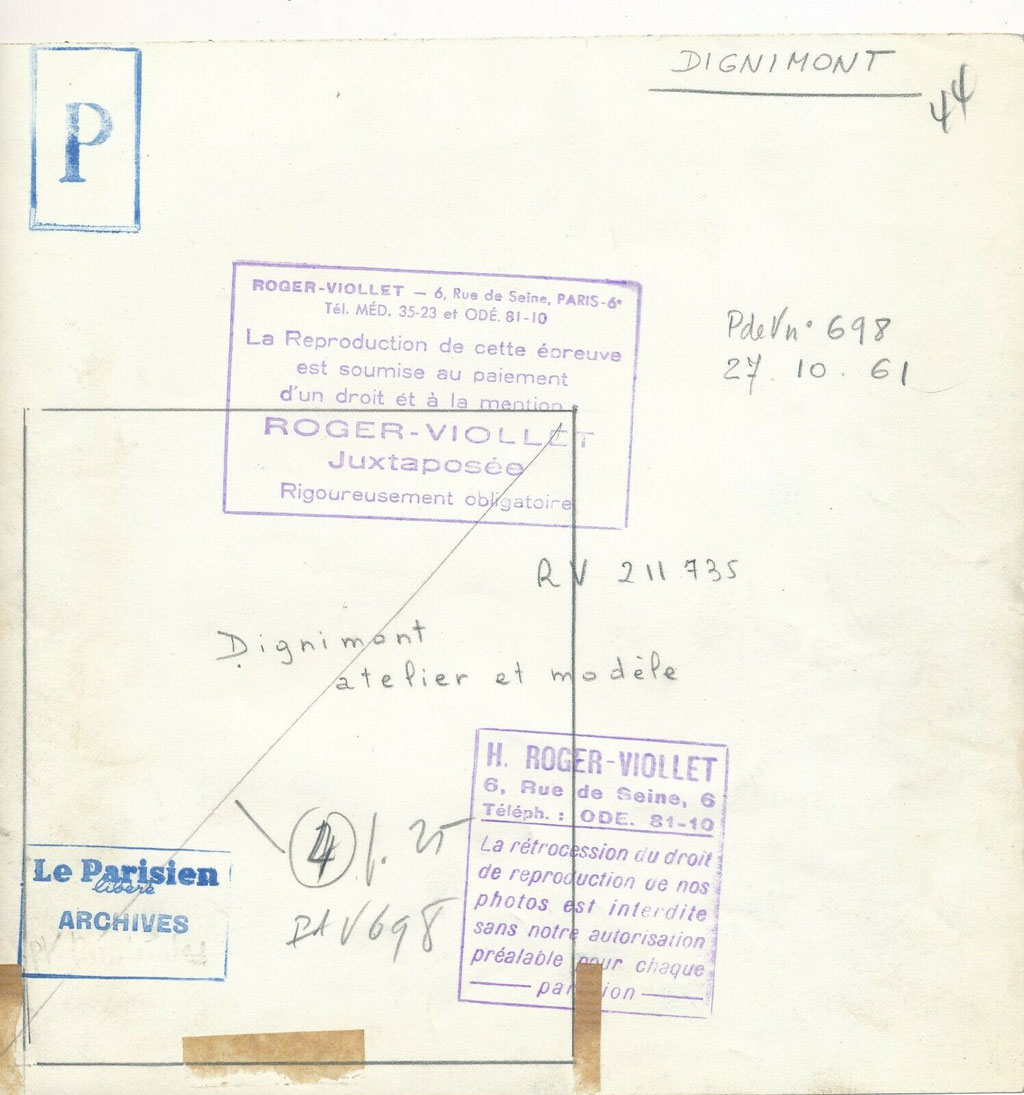 P
DIGNIMONT
44
ROGER-VIOLLET — 6, Rue de Seine, PARIS-6e
Tél. MÉD. 35-23 et ODÉ. 81-10
La Reproduction de cette épreuve
est soumise au paiement
d'un droit et à la mention
ROGER-VIOLLET
Juxtaposée
Rigoureusement obligatoire
PdeVn° 698
27. 10. 61
RV 211 735
Dignimont
atelier et modèle
H. ROGER-VIOLLET
6, Rue de Seine, 6
Téléph. : ODE. 81-10
La rétrocession du droit
de reproduction de nos
photos est interdite
sans notre autorisation
préalable pour chaque
parution
4
V698
Le Parisien
libéré
ARCHIVES